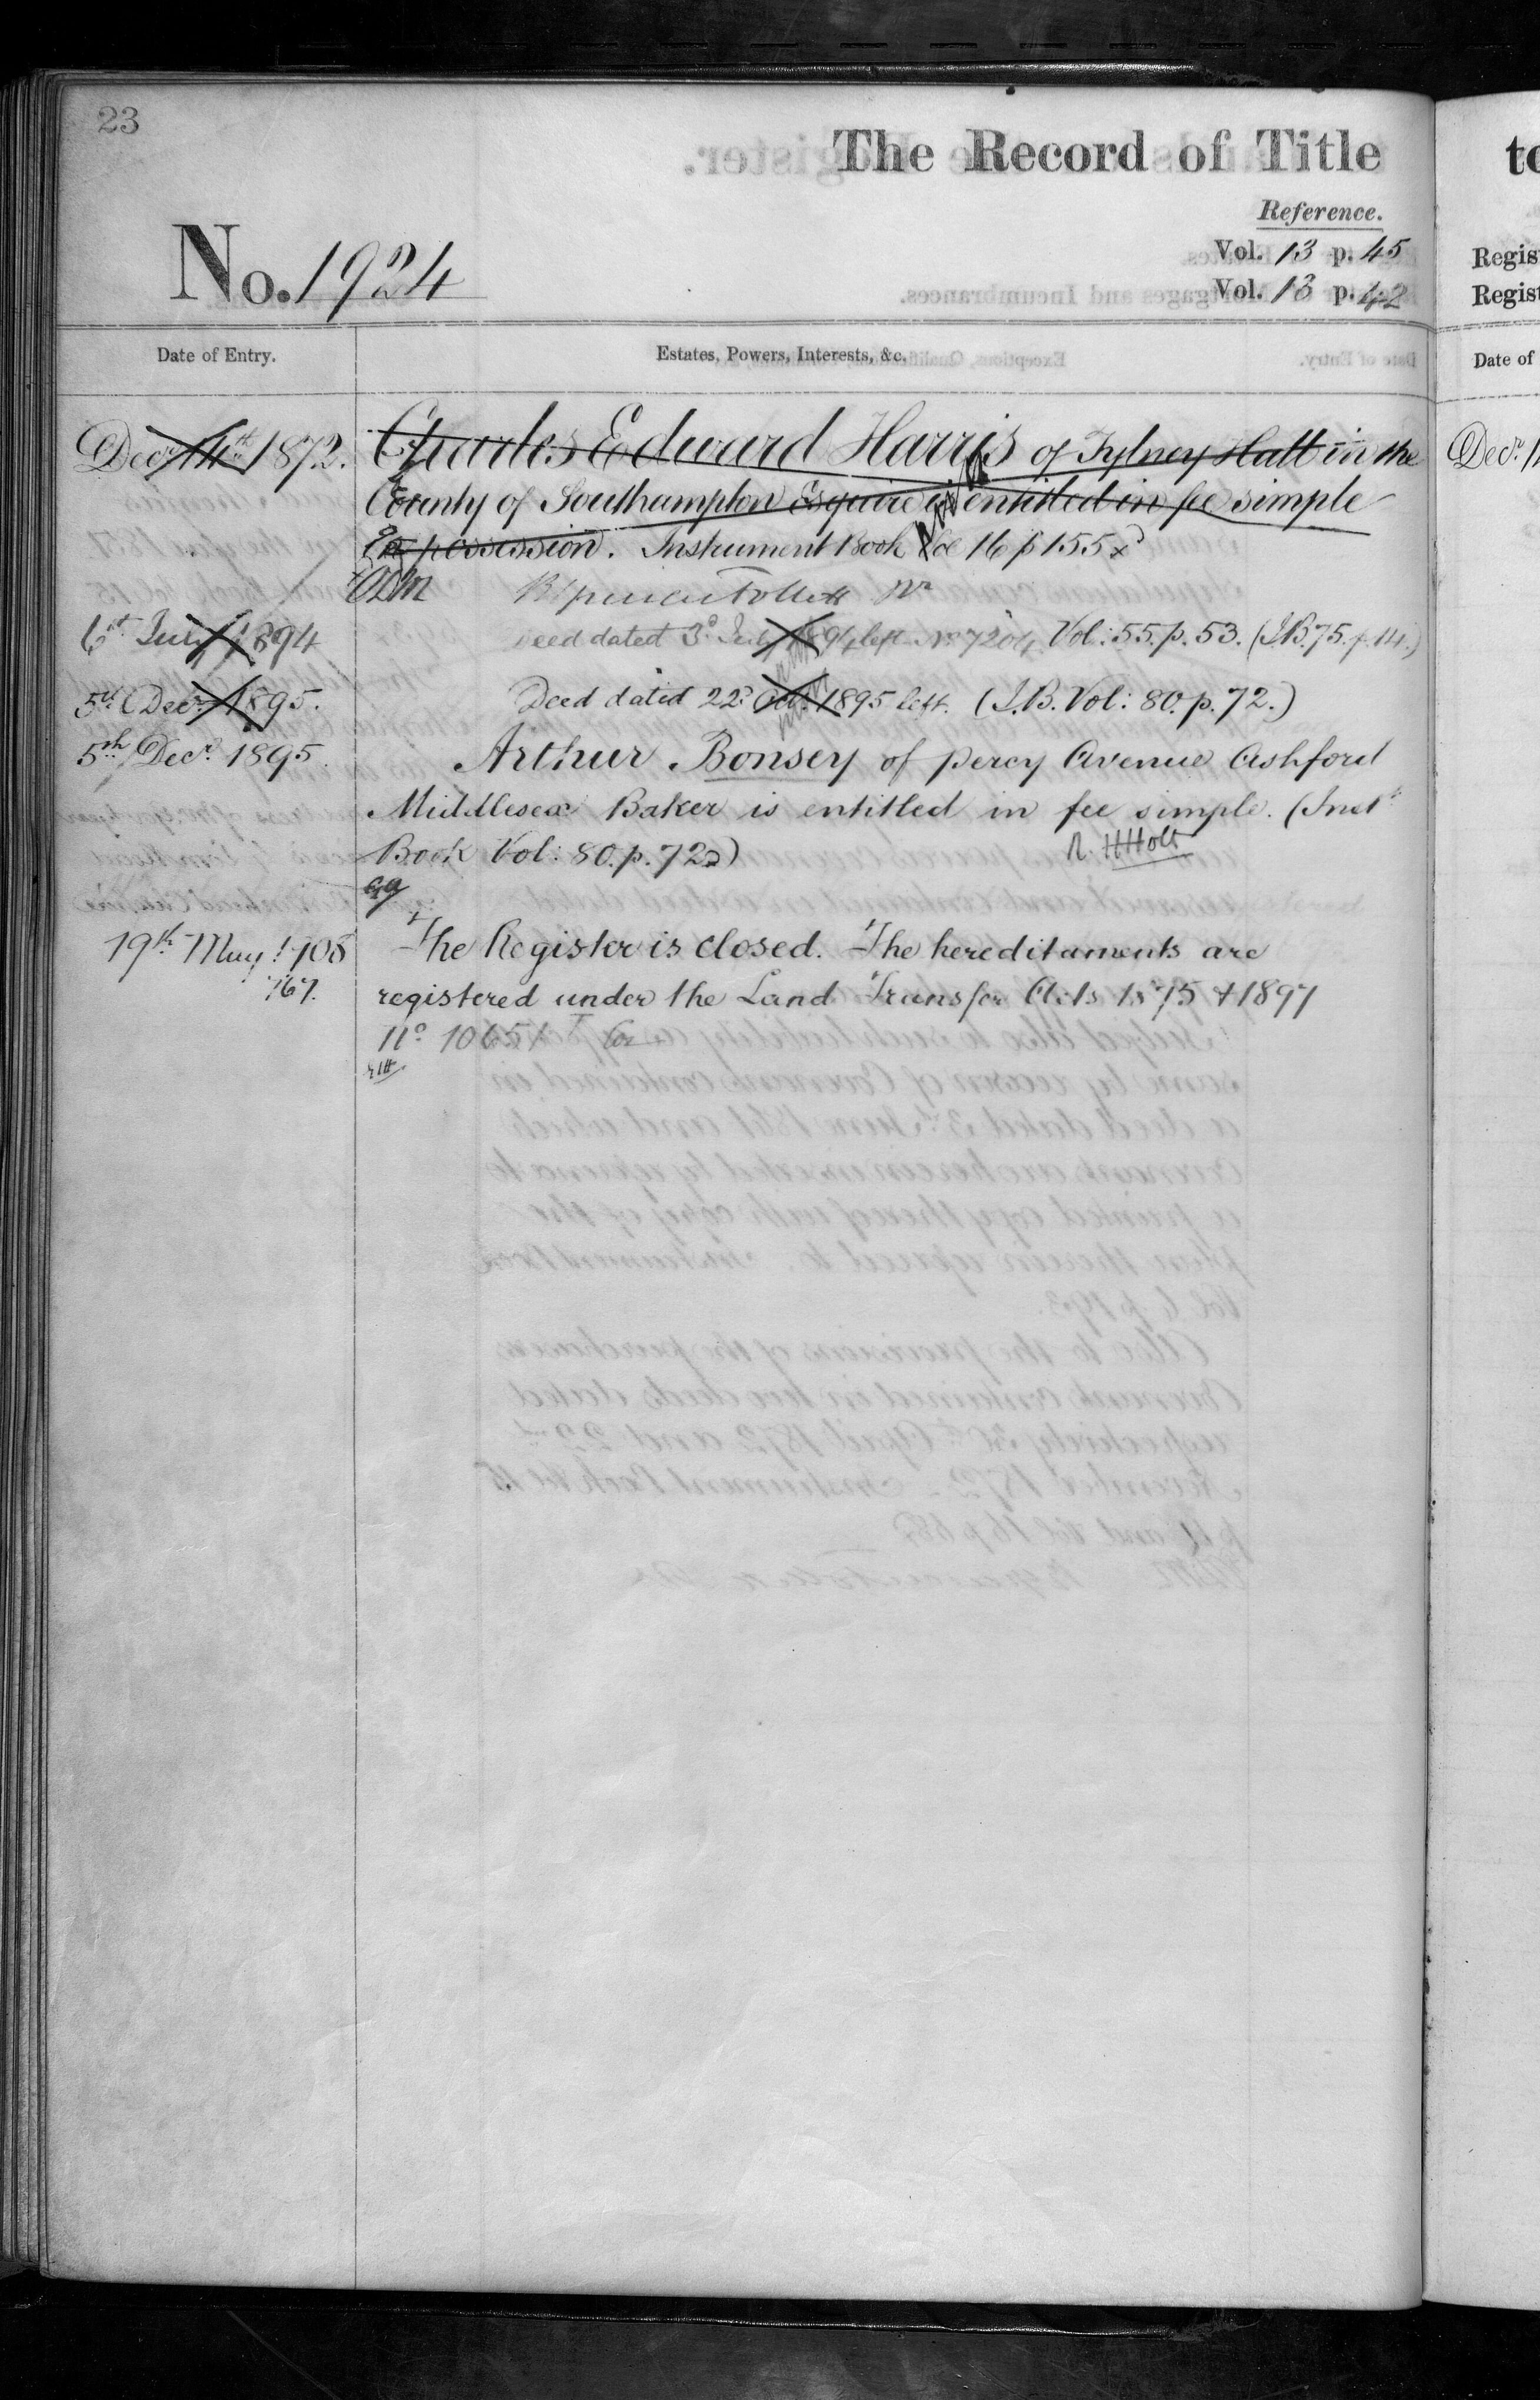 23
The Record of Title
Reference.
No. 1924
Vol. 13 p. 45
Vol. 13 p. 42
Date of Entry.
Estates, Powers, Interests, &c.
Decr. 14th 1872.
Charles Edward Harris of Tylney Hall in the
County of Southampton Esquire is entitled in fee simple
in possession. Instrument Book Vol 16 p 155
6th July 1894
Deed dated 3d July 1894 left No. 7204 Vol: 55. p. 53. (I.B. 75. p. 14.)
5th Decr. 1895.
Deed dated 22d Oct. 1895 left. (I.B. Vol: 80. p. 72.)
5th Decr. 1895.
Arthur Bonsey of Percy Avenue Ashford
Middlesex Baker is entitled in fee simple. (Inst
Book Vol: 80. p. 72)
R. H Holt
19th May 1905
The Register is closed. The hereditaments are
registered under the Land Transfer Acts 1875 & 1897
No
to
Regis
Regist
Date of
Decr. 1